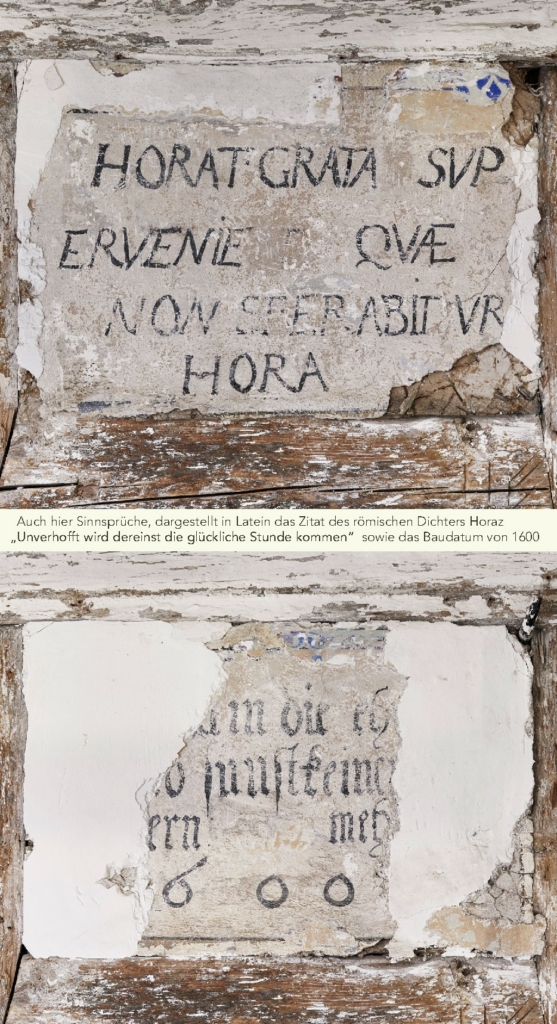 HORAT GRATA SVP
ERVENIE QVÆ
NON SPERABITVR
HORA
Auch hier Sinnsprüche, dargestellt in Latein das Zitat des römischen Dichters Horaz
„Unverhofft wird dereinst die glückliche Stunde kommen” sowie das Baudatum von 1600
in die eh
sunst keine
ern meh
6 0 0